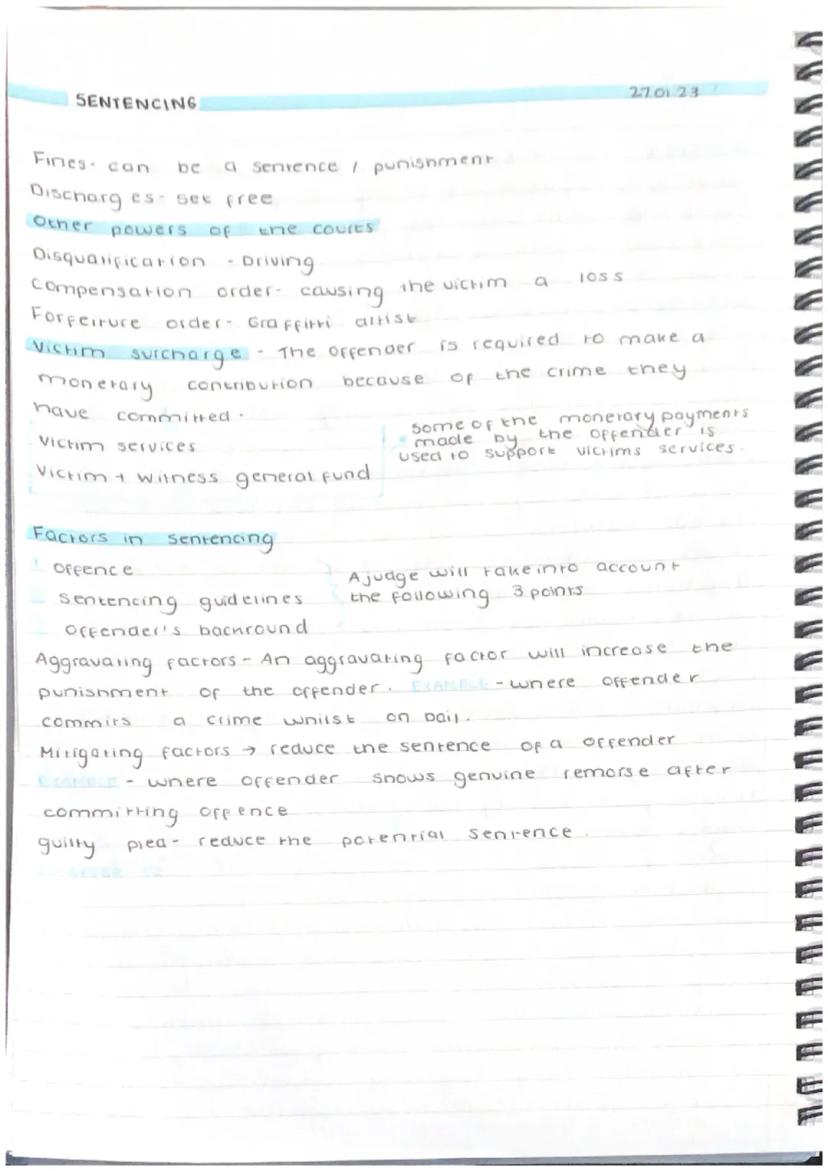 SENTENCING
27.01.23
Fines- can be a sentence / punishment
Discharges- set free
Other powers of the courts
Disqualification - Driving
Compensation order- causing the victim a loss
Forfeiture order- Graffitti artist
Victim surcharge - The offender is required to make a
monetary contribution because of the crime they
have committed.
Victim services
Victim + Witness general fund
some of the monetary payments
made by the offender is
used to support victims services.
Factors in sentencing
offence
sentencing guidelines
offender's bacnround
A judge will take into account
the following 3 points
Aggravating factors - An aggravating factor will increase the
punishment of the offender. EXAMPLE - where offender
commits a crime whilst on bail.
Mitigating factors → reduce the sentence of a offender
EXAMPLE - where offender shows genuine remorse after
committing offence
guilty plea- reduce the potential sentence.